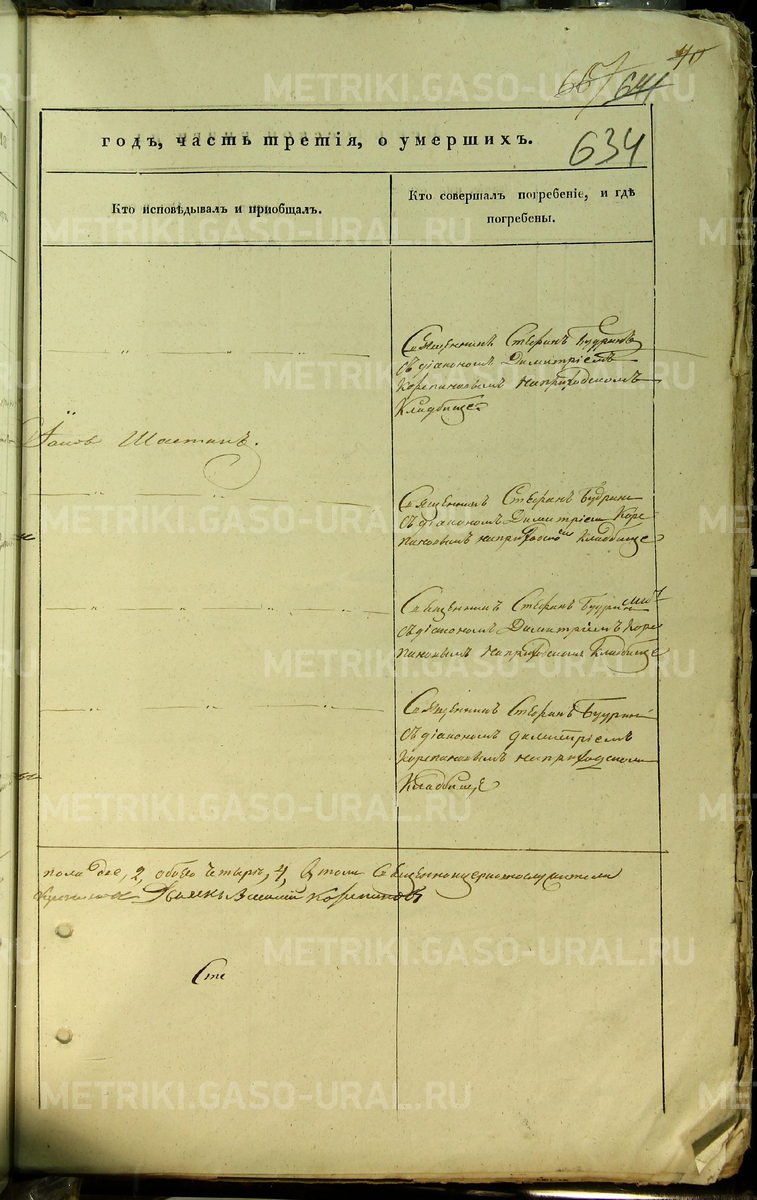 40
667/641
634
годъ, часть третія, о умершихъ.
Кто исповѣдывалъ и пріобщалъ.
Кто совершалъ погребеніе, и гдѣ
погребены.
Священникъ Стефанъ Будринъ
съ діакономъ Димитріемъ
Корепановымъ наприходскомъ
Кладбище
Священникъ Стефанъ Будрин
съ діакономъ Димитріем Коре
пановымъ наприходском Кладбище
Священникъ Стефанъ Будрин
съ діакономъ Димитріемъ Коре
пановымъ наприходском Кладбище
Священникъ Стефанъ Будрин
съ діакономъ Димитріемъ
Корепановымъ наприходском
Кладбище
пола две, 2, обоего четыре, 4, В томъ Священноцерковнослужители
Василий Корепановъ
Сте
METRIKI.GASO-URAL.RU